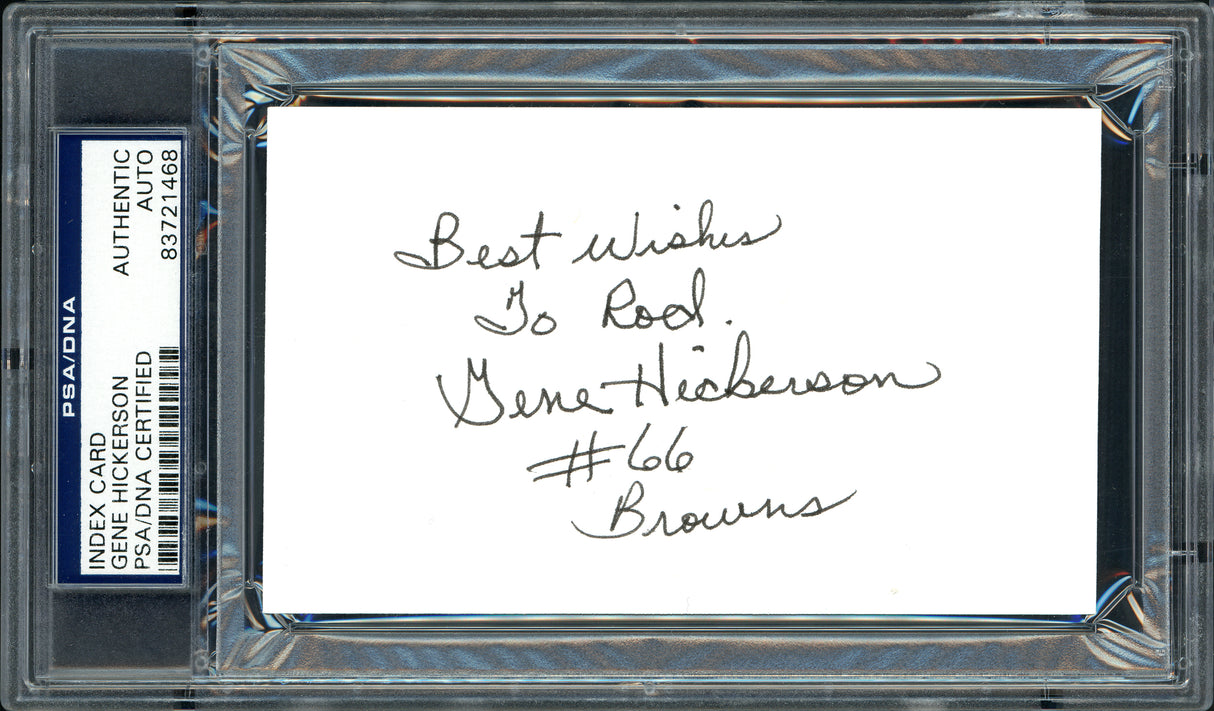 PSA/DNA
INDEX CARD
GENE HICKERSON
PSA/DNA CERTIFIED
AUTHENTIC
AUTO
83721468
Best Wishes
To Rod.
Gene Hickerson
#66
Browns